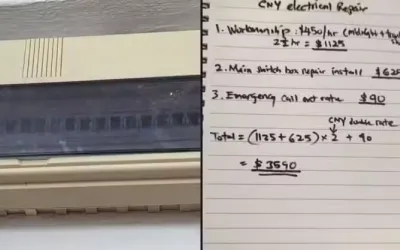 CNY electrical Repair
1. Workmanship : $450/hr (midnight +
2½ hr = $1125
2. Main switch box repair install $625
3. Emergency call out rate $90
CNY double rate
Total = (1125 + 625) × 2 + 90
= $3590